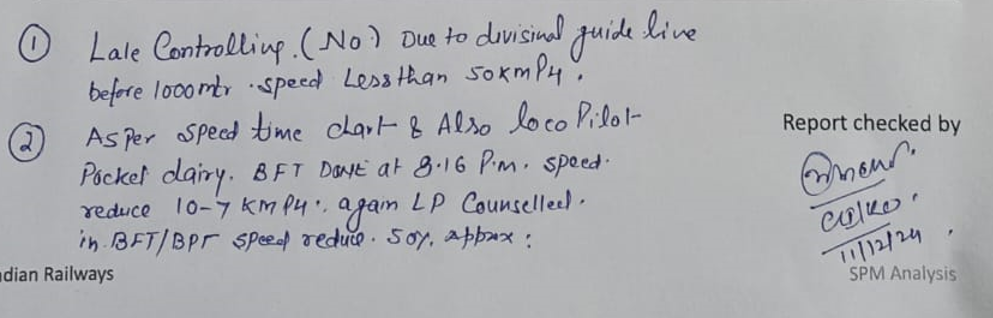 ① Lale Controlling. (No) Due to divisinal guide live
before 1000 mtr. speed Less than 50 kmPH.
② As Per speed time chart & Also loco Pilot
Pocket dairy. BFT DONE at 8.16 P.m. speed.
reduce 10-7 KMPH. again LP Counselled.
in BFT/BPT speed reduce. 50%. appox :
Report checked by
11/12/24
dian Railways
SPM Analysis